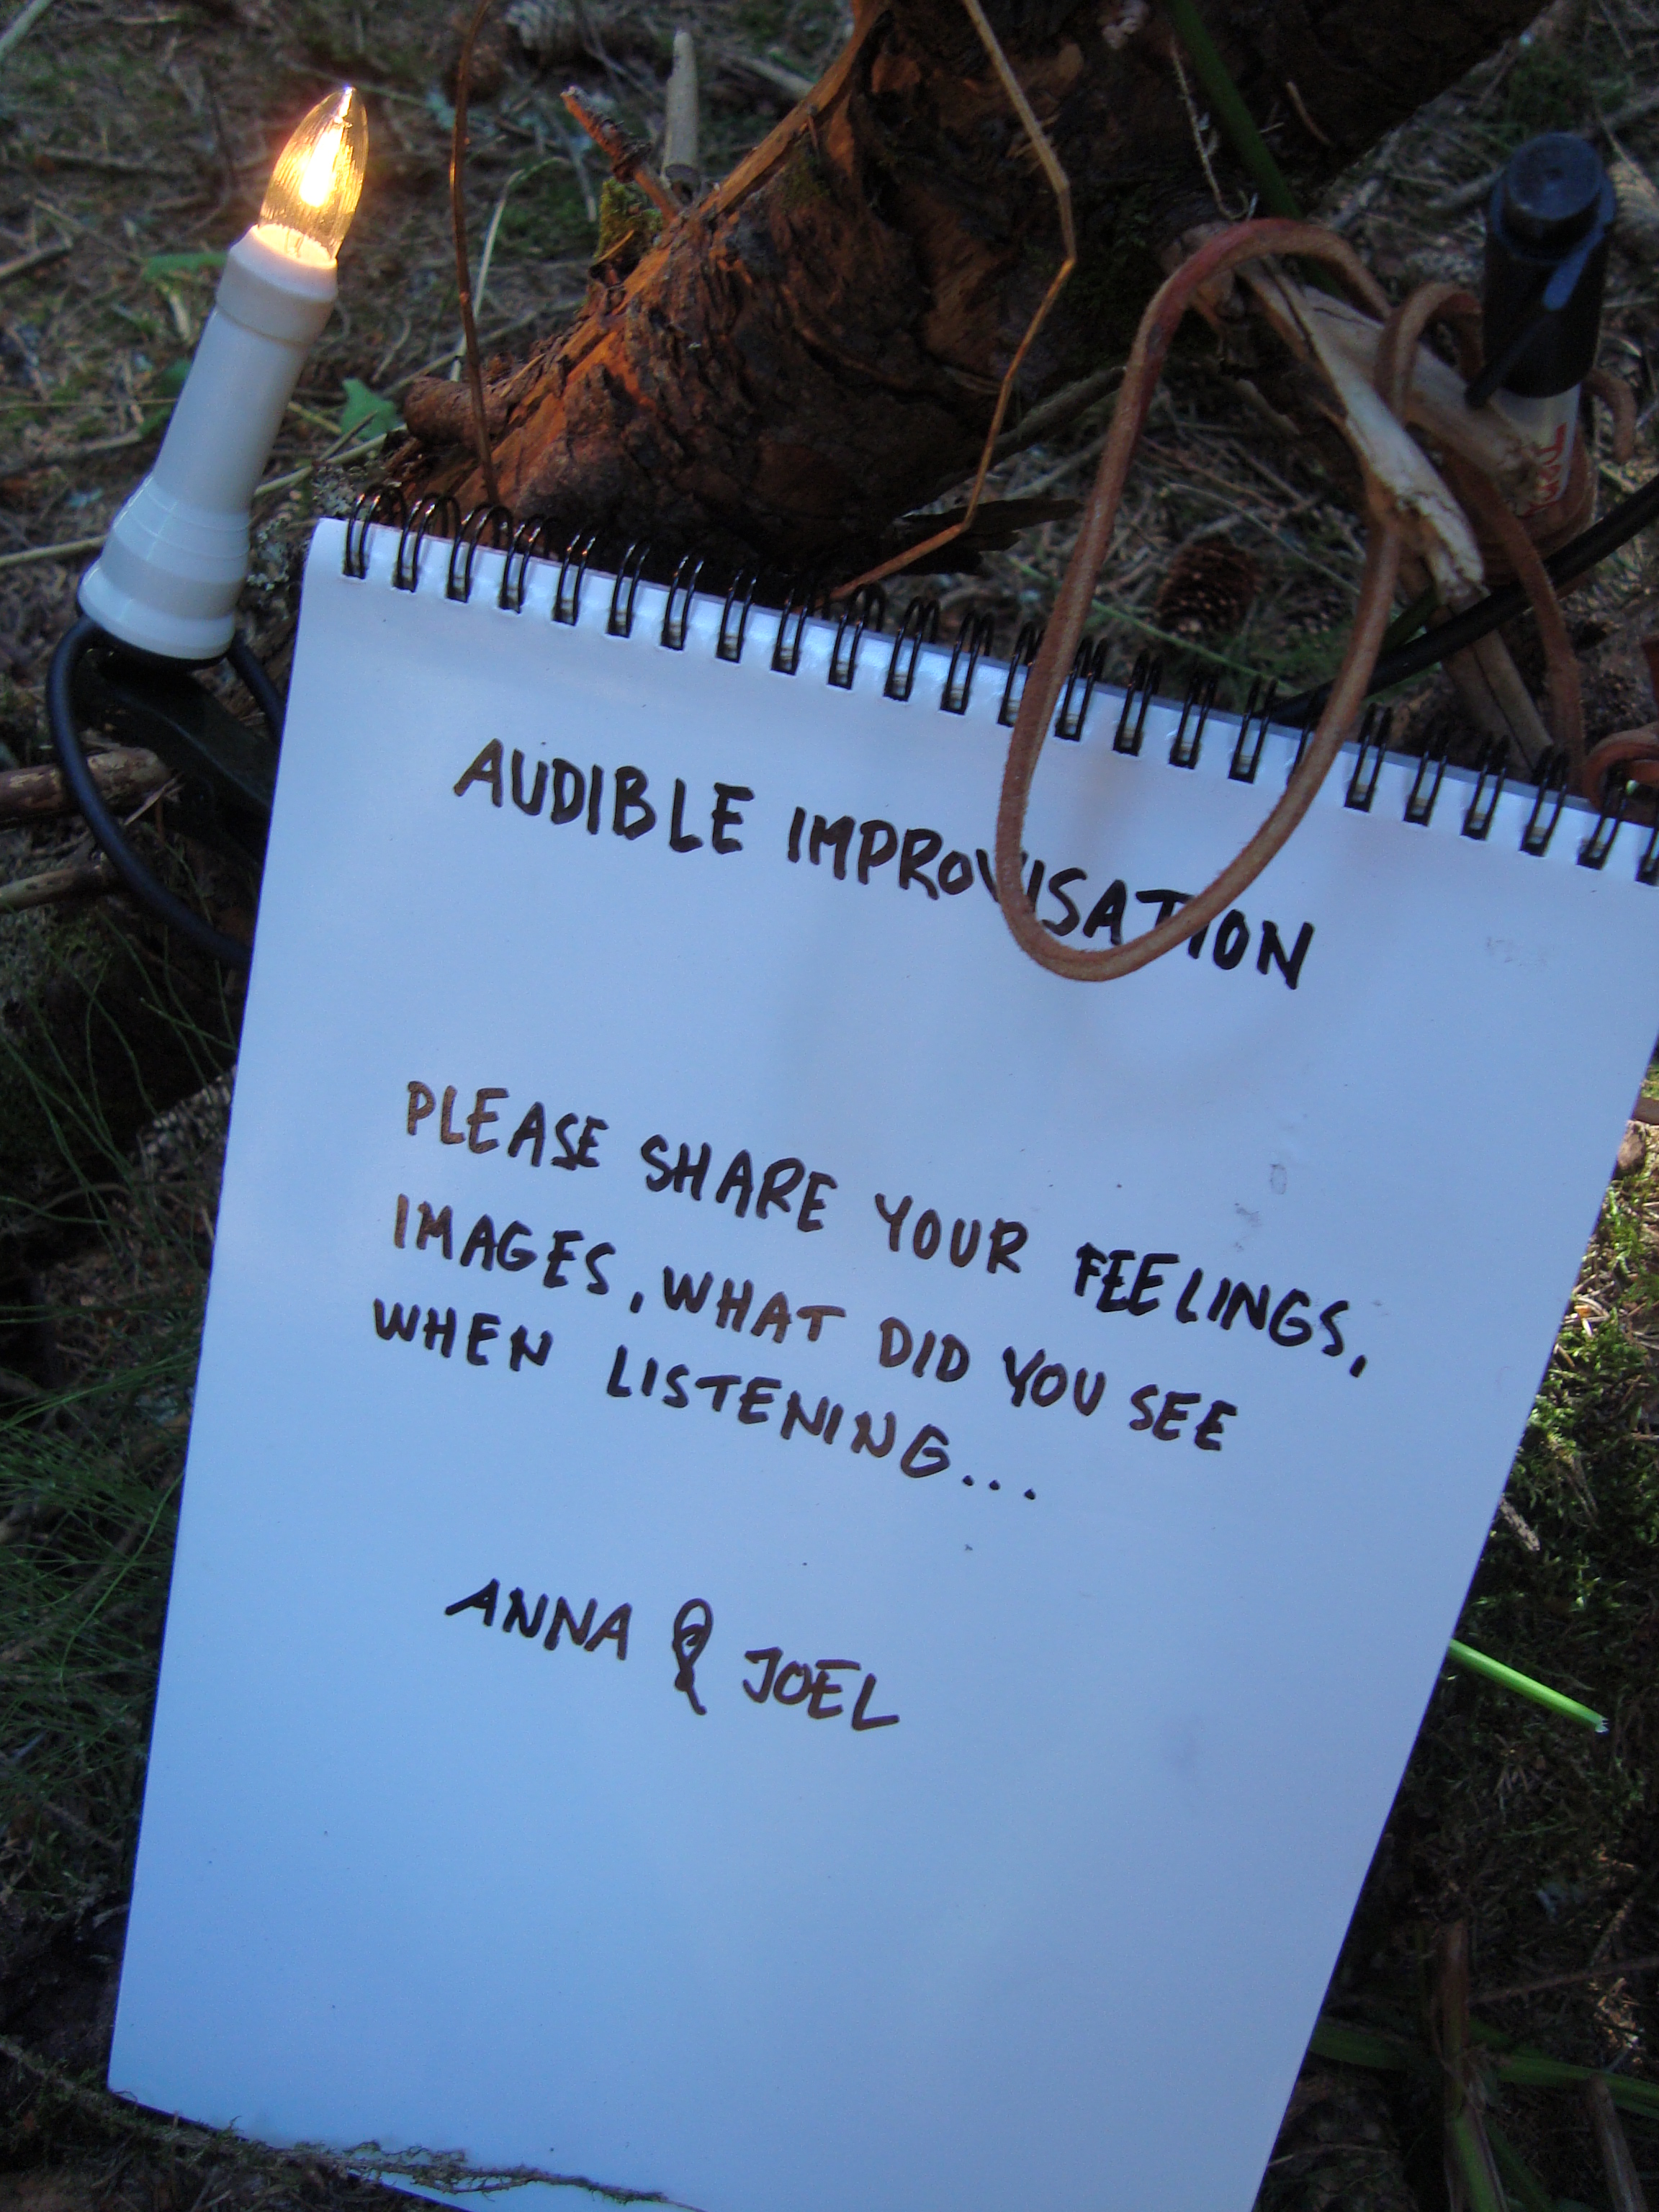 AUDIBLE IMPROVISATION
PLEASE SHARE YOUR FEELINGS,
IMAGES, WHAT DID YOU SEE
WHEN LISTENING...
ANNA & JOEL